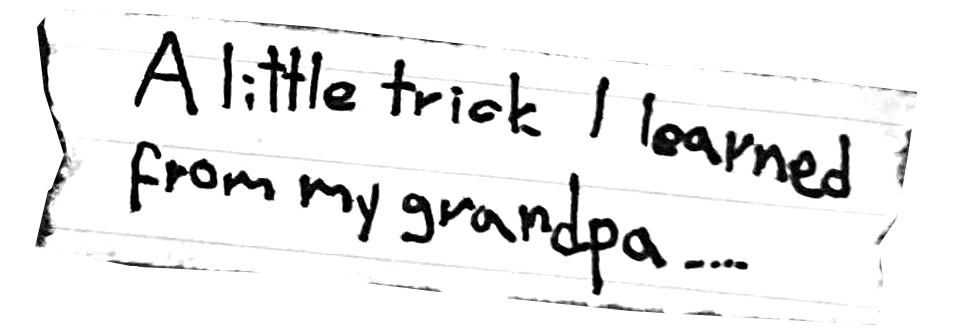 A little trick I learned
from my grandpa....